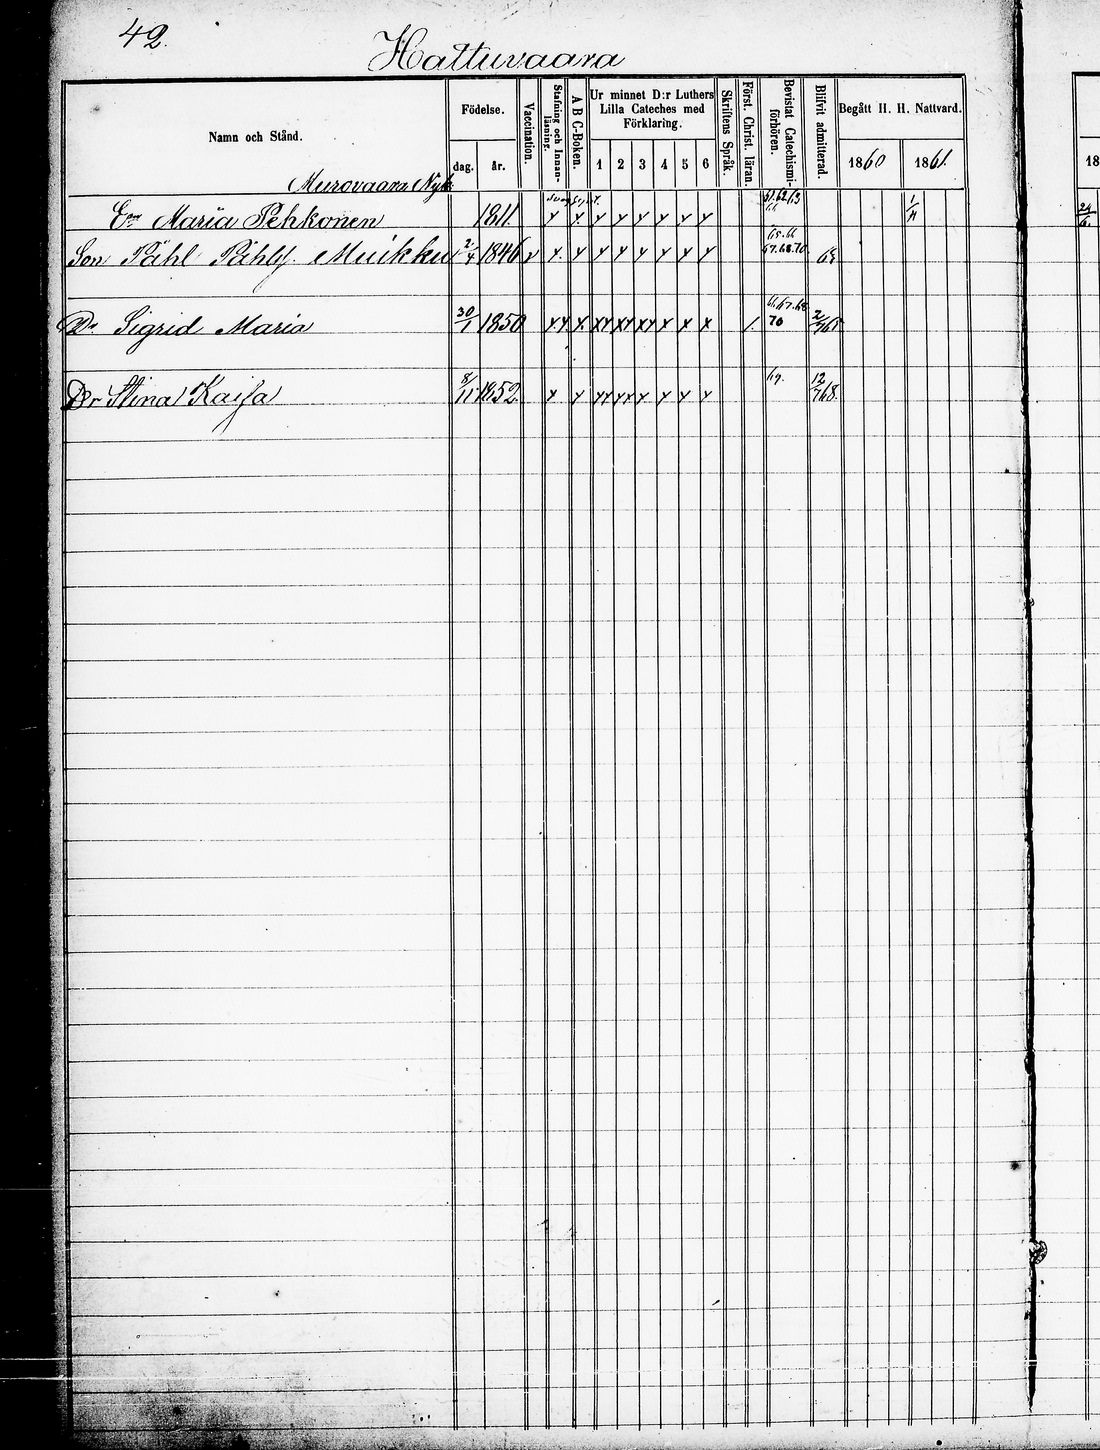 42.
Hattuvaara
Namn och Stånd.
Födelse.
dag.
år.
Vaccination.
Stafning och Innanläsning.
A B C-Boken.
Ur minnet D:r Luthers Lilla Cateches med Förklaring.
1 2 3 4 5 6
Skriftens Språk.
Först. Christ. läran.
Bevistat Catechismi-förhören.
Blifvit admitterad.
Begått H. H. Nattvard.
1860 1861
18
Murovaara Nyb.
Maria Pehkonen 1811 x x. x x x x x x 61.62.63 1/11
Son Påhl Påhlsf. Muikku 2/4 1846 v x. x x x x x x x 65.66 67.68.70.
Dr Sigrid Maria 30/1 1850 x.x x. xx xx xx x x x /. 67.68 70
Dr Stina Kaisa 8/11 1852 x x xx xx x x x x 69. 12/7 68.
24/6.